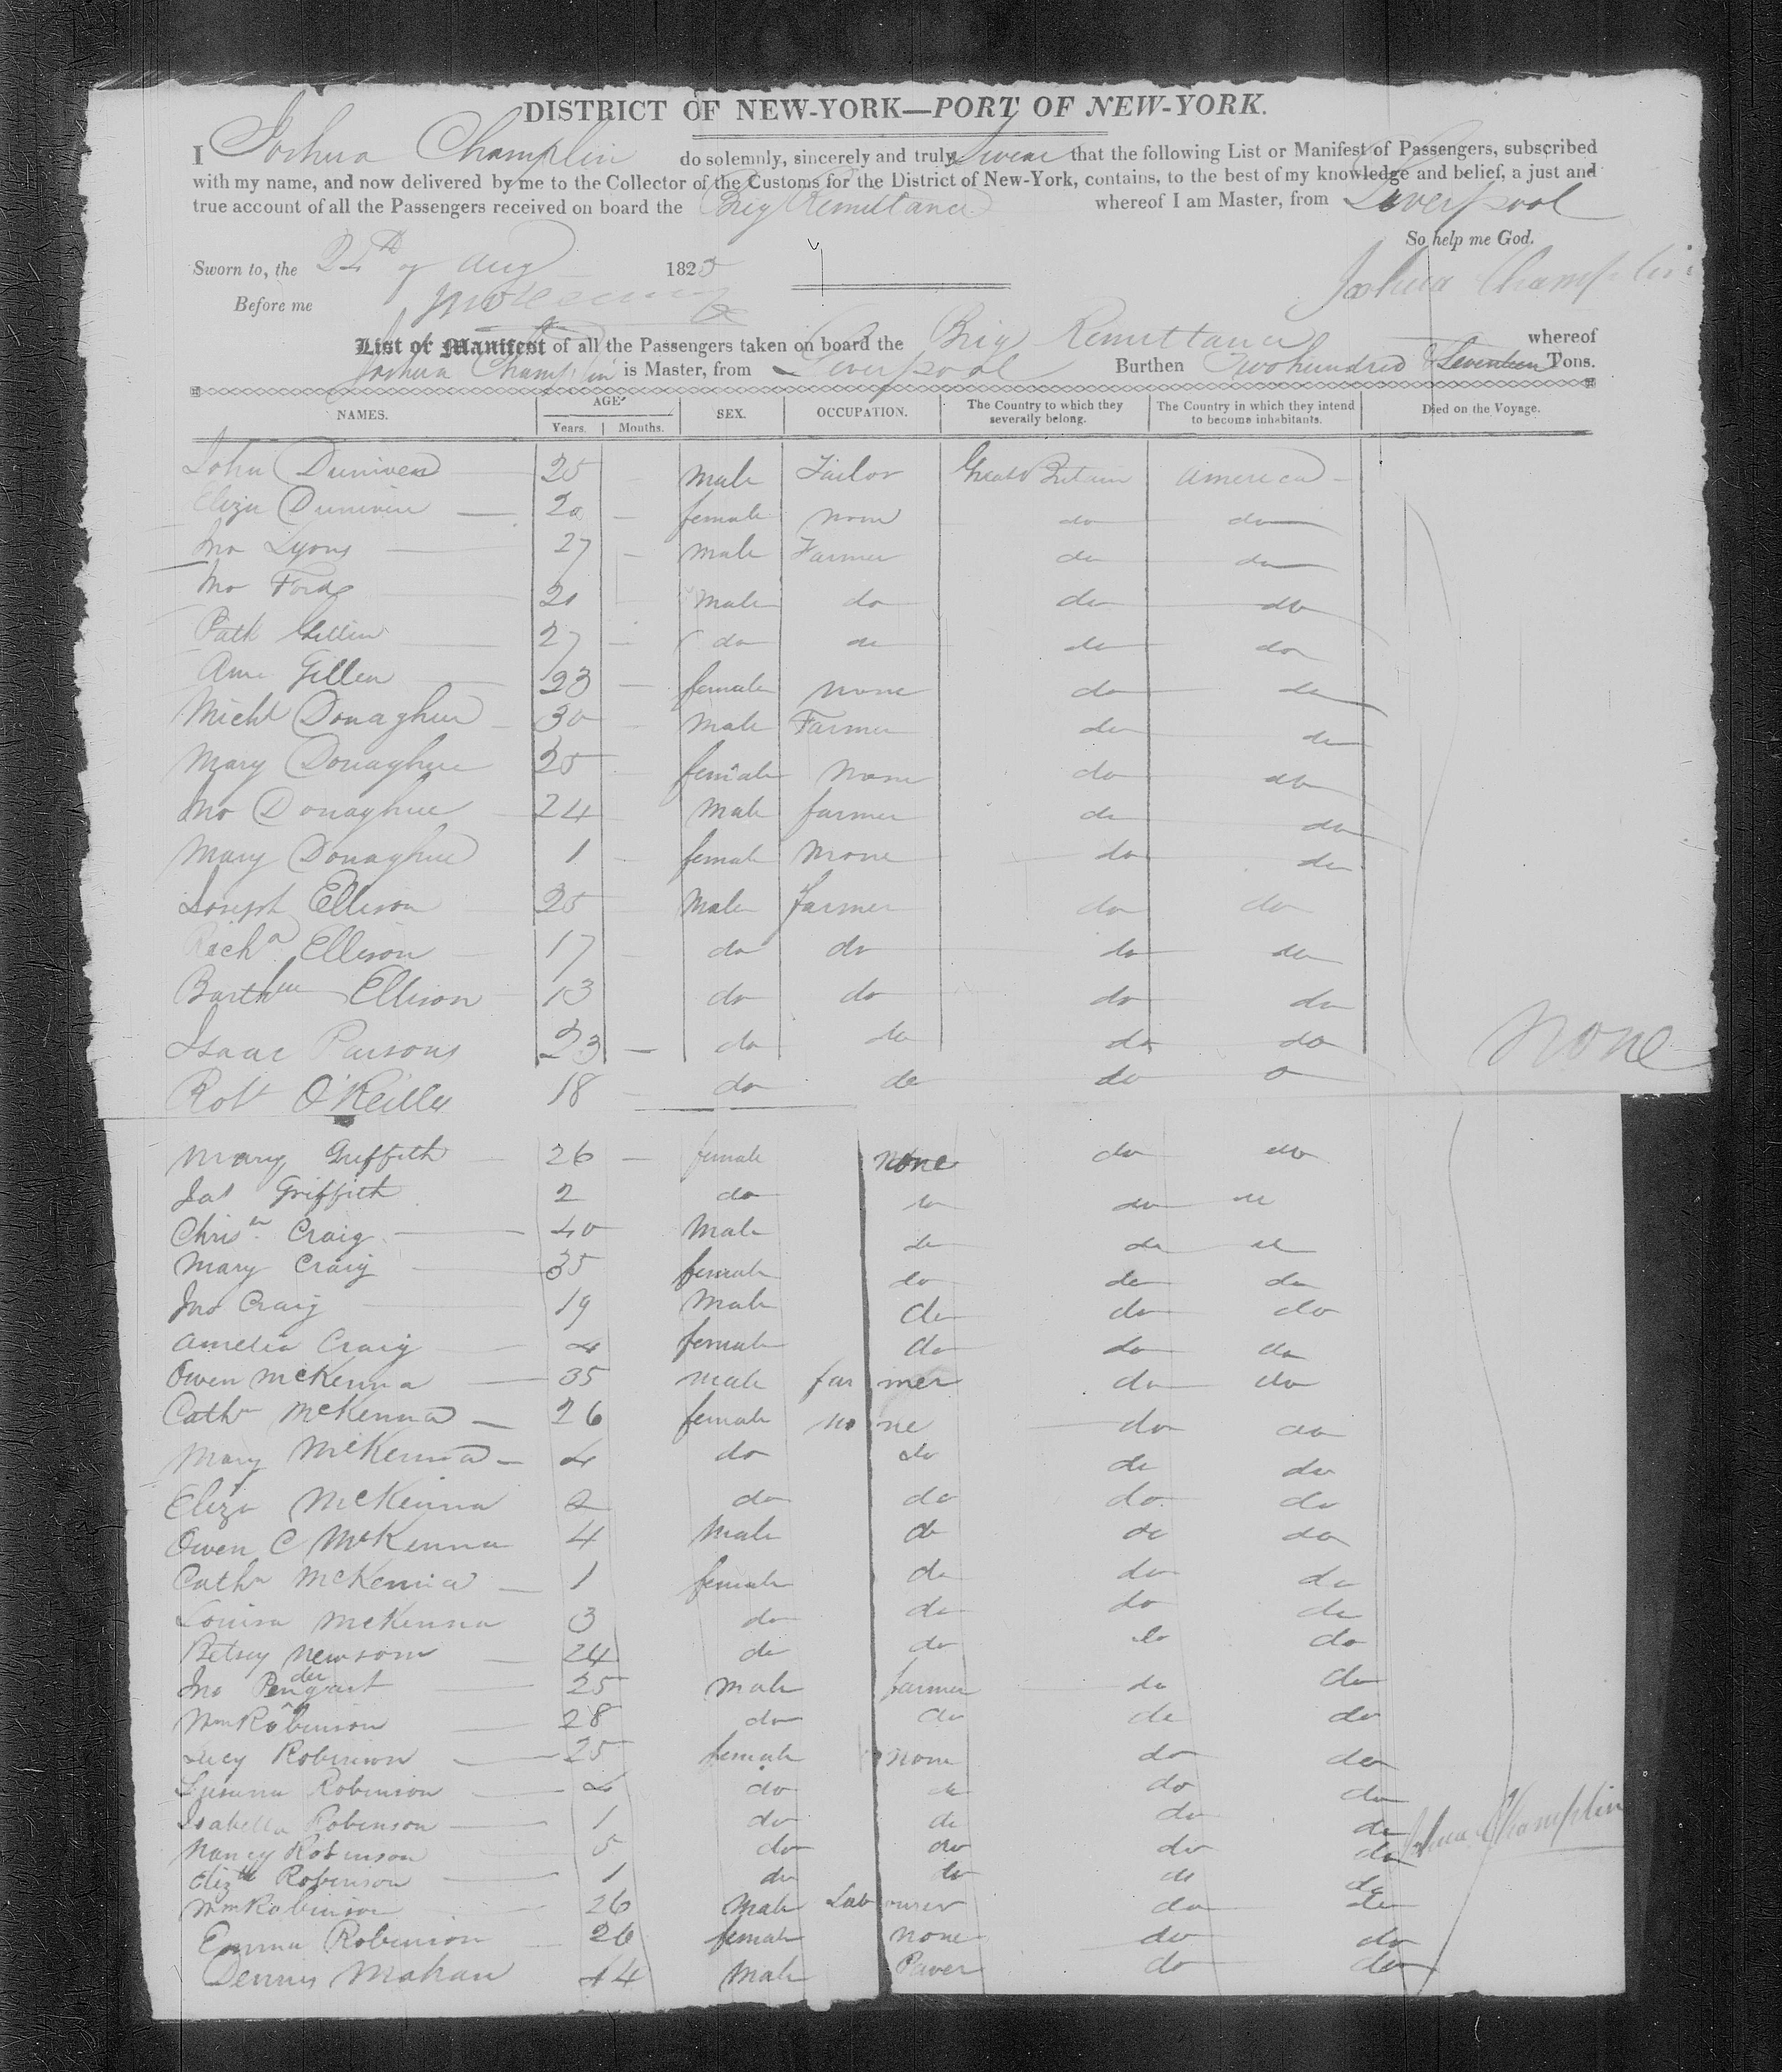 DISTRICT OF NEW-YORK—PORT OF NEW-YORK.
I Joshua Champlin do solemnly, sincerely and truly Swear that the following List or Manifest of Passengers, subscribed
with my name, and now delivered by me to the Collector of the Customs for the District of New-York, contains, to the best of my knowledge and belief, a just and
true account of all the Passengers received on board the Brig Remittance whereof I am Master, from Liverpool
So help me God.
Sworn to, the 24th of Aug 1825 Joshua Champlin
Before me
List or Manifest of all the Passengers taken on board the Brig Remittance whereof
Joshua Champlin is Master, from Liverpool Burthen Two hundred & Seventeen Tons.
NAMES. AGE Years. Months. SEX. OCCUPATION. The Country to which they severally belong. The Country in which they intend to become inhabitants. Died on the Voyage.
John Duniven 25 male Tailor Great Britain America
Eliza Duniven 20 female none do do
Jno Lyons 27 male Farmer do do
Jno Ford 21 male do do do
Patk Gillen 27 do do do do
Ann Gillen 23 female none do do
Michl Donaghue 30 male Farmer do do
Mary Donaghue 25 female none do do
Jno Donaghue 24 male farmer do do
Mary Donaghue 1 female none do do
Joseph Ellison 25 male farmer do do
Richd Ellison 17 do do do do
Barthw Ellison 13 do do do do
Isaac Parsons 23 do do do do
none
Robt O'Reilly 18 do do do o
Mary Griffith 26 female none do do
Jas Griffith 2 do do do do
Chrisr Craig 40 male do do do
Mary Craig 35 female do do do
Jno Craig 19 male do do do
Amelia Craig 4 female do do do
Owen McKenna 35 male farmer do do
Cathn McKenna 26 female none do do
Mary McKenna 4 do do do do
Eliza McKenna 2 do do do do
Owen C McKenna 4 male do do do
Cathn McKenna 1 female do do do
Louisa McKenna 3 do do do do
Betsey Newsom 24 do do do do
Jno 25 male farmer do do
Wm Robinson 28 do do do do
Lucy Robinson 25 female none do do
Susanna Robinson 4 do do do do
Isabella Robinson 1 do do do do
Joshua Champlin
Nancy Robinson 5 do do do do
Elizth Robinson 1 do do do do
Wm Robinson 26 male Labourer do do
Emma Robinson 26 female none do do
Dennis Mahan 44 male Paver do do